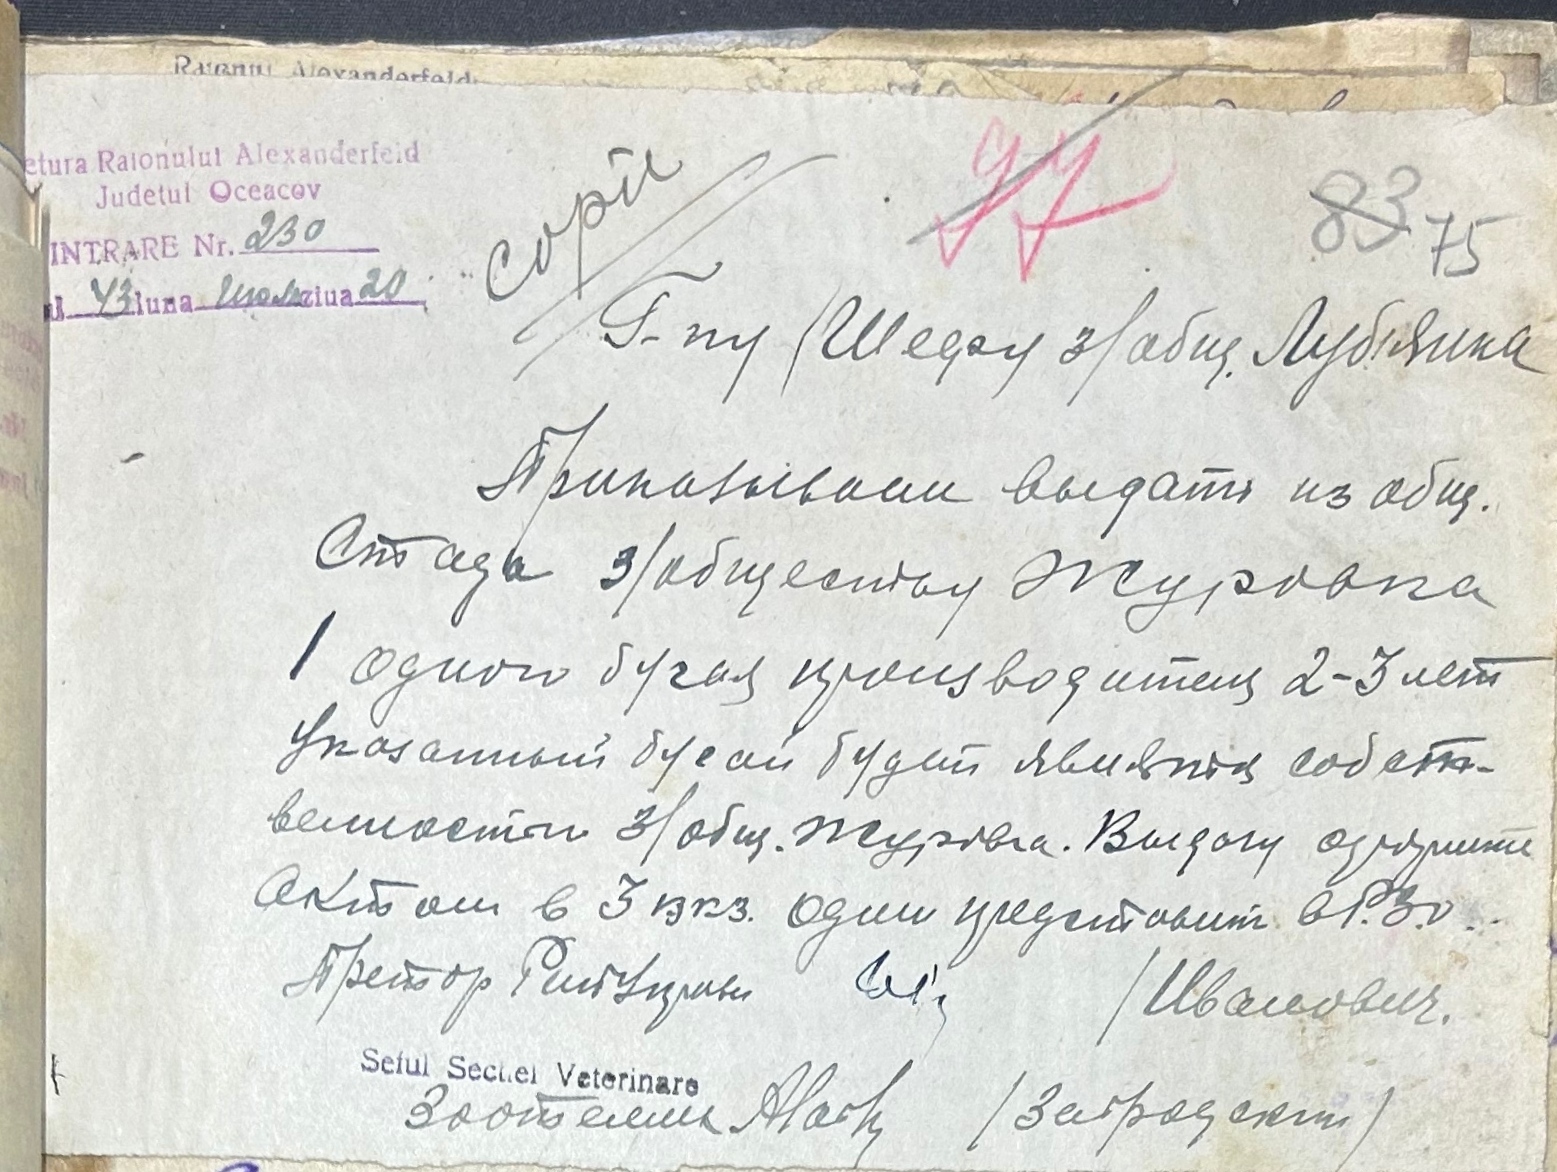 Raionul Alexanderfeld
etura Raionului Alexanderfeld
Judeţul Oceacov
INTRARE Nr. 230
43 luna Июль ziua 20
copie
77
83 75
Г-ну /Шефу з/общ. Лубянка
Приказываю выдать из общ.
стада з/обществу Журовка
1 одного бугая производителя 2-3 лет
Указанный бугай будет являться собст-
венностью з/общ. Журовка. Выдачу оформите
Актом в 3 экз. один представить в Р.З.о.
Претор Рай Управы /Иванович.
Seful Secţiei Veterinare
Зоотехник